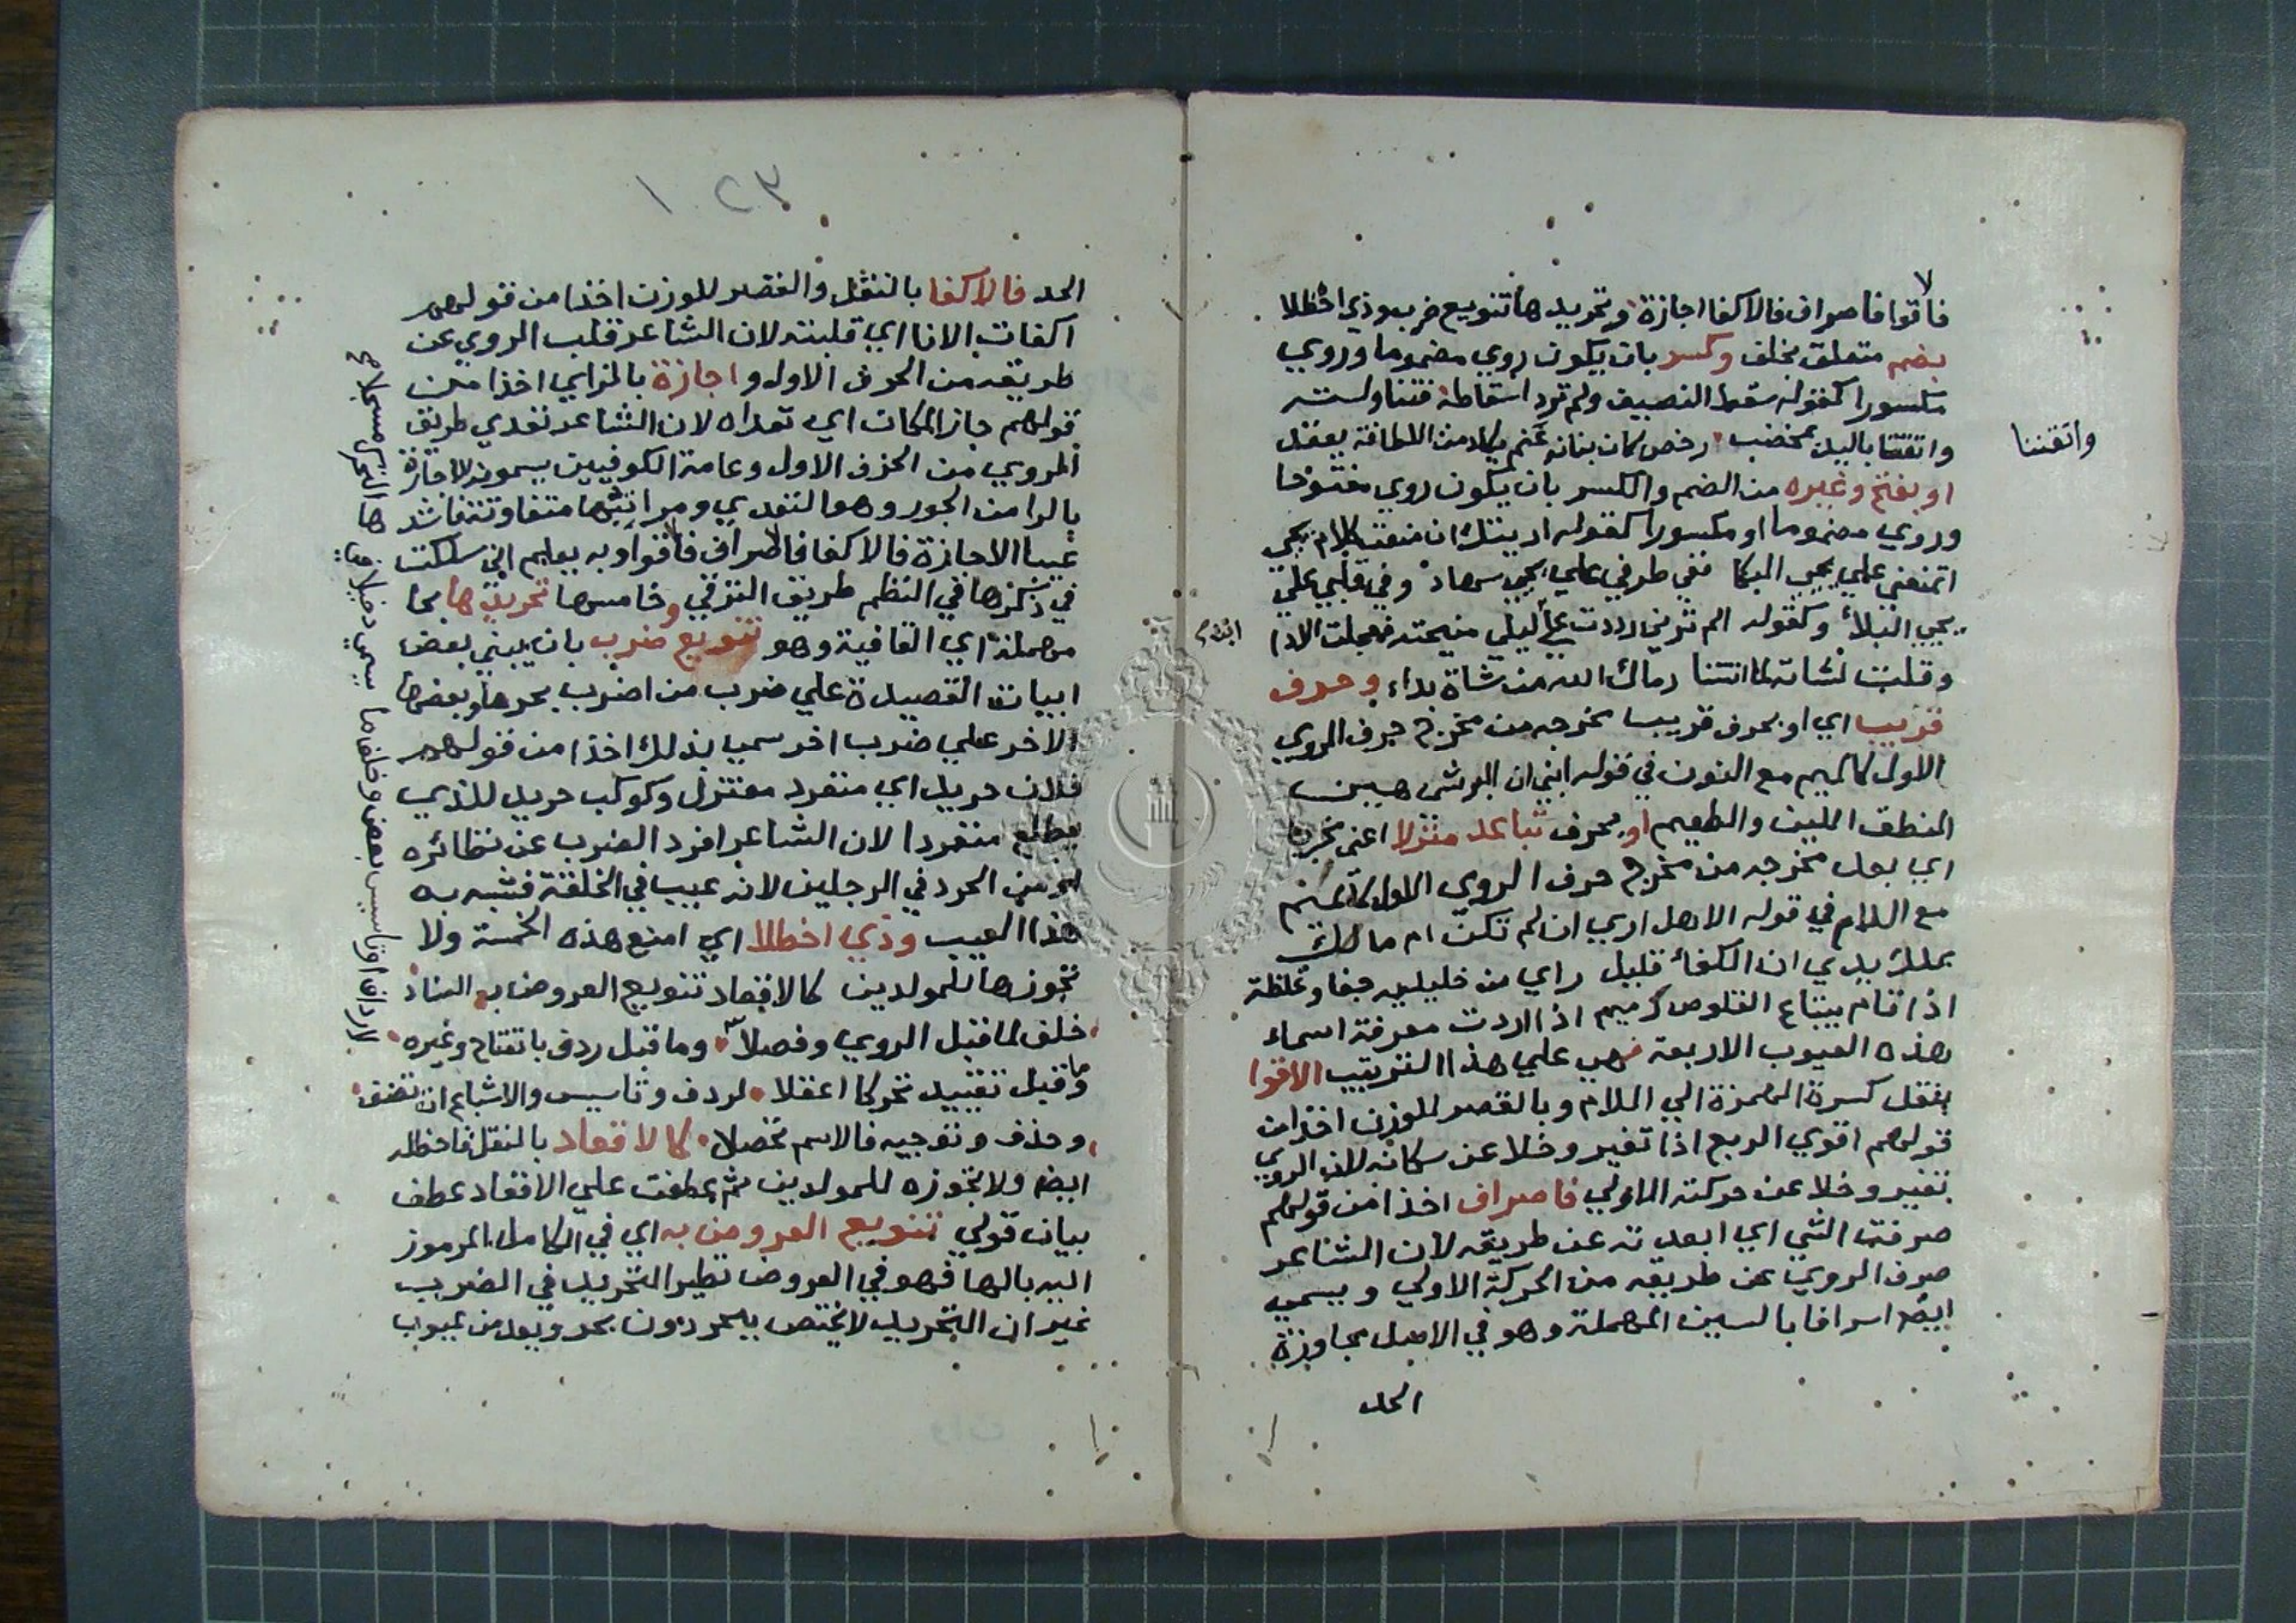 فاقوا فاصراف فالاكفا اجازة وتحريدها تنويع ضرب وذي اخظلا
بضم متعلق بخلف وكسر بان يكون روي مضموما وروي
مكسورا كقوله سقط النصيف ولم ترد اسقاطه فتناولته
واتقتنا باليد بمخضب رخص كان بنانه عنم يكاد من اللطافة يعقد
واتقتنا
او بفتح وغيره من الضم والكسر بان يكون روي مفتوحا
وروي مضموما او مكسورا كقوله اريتك ان منعت كلام يحيي
اتمنعني علي يحيي البكا ففي طرفي علي يحيي سهاد وفي قلبي علي
يحيي البلاء وكقوله الم ترني رددت علي ليلي منيحته فعجلت الادا
وقلت لشاته لما اتتنا رماك الله من شاة بداء وحرف
قريب اي او بحرف قريب مخرجه من مخرج حرف الروي
الاول كالميم مع النون في قوله ابني ان البر شي هين
المنطق اللين والطعيم او بحرف تباعد منزلا اعني مخرجا
اي بعد مخرجه من مخرج حرف الروي الاول كالميم
مع اللام في قوله الا هل اري ان لم تكن ام مالك
بملك يدي ان الكفاء قليل راي من خليليه جفا وغلظة
اذا قام يبتاع القلوص ذميم اذا اردت معرفة اسماء
هذه العيوب الاربعة فهي علي هذا الترتيب الاقوا
بنقل كسرة الهمزة الي اللام وبالقصر للوزن اخذا من
قولهم اقوي الربع اذا تغير وخلا عن سكانه لان الروي
تغير وخلا عن حركته الاولي فاصراف اخذا من قولهم
صرفت الشي اي ابعدته عن طريقه لان الشاعر
صرف الروي عن طريقه من الحركة الاولي ويسمي
ايضا اسرافا بالسين المهملة وهو في الاصل مجاوزة
الحد
الحد فالاكفا بالنقل والقصر للوزن اخذا من قولهم
اكفات الانا اي قلبته لان الشاعر قلب الروي عن
طريقه من الحرف الاول واجازة بالزاي اخذا من
قولهم جاز المكان اي تعداه لان الشاعر تعدي طريق
الروي من الحرف الاول وعامة الكوفيين يسمونه الاجارة
بالرا من الجور وهو التعدي ومراتبها متفاوتة فاشد
عيبا الاجازة فالاكفا فالاصراف فالاقوا وبه يعلم اني سلكت
في ذكرها في النظم طريق الترقي وخامسها تحريدها بحا
مهملة اي القافية وهو تنويع ضرب بان يبني بعض
ابيات القصيدة علي ضرب من اضرب بحرها وبعضها
الاخر علي ضرب اخر سمي بذلك اخذا من قولهم
فلان حريد اي منفرد معتزل وكوكب حريد للذي
يطلع منفردا لان الشاعر افرد الضرب عن نظائره
او من الحرد في الرجلين لانه عيب في الخلقة فشبه به
هذا العيب وذي اخظلا اي امنع هذه الخمسة ولا
تجوزها للمولدين كالاقعاد تنويع العروض به السناد
خلف لما قبل الروي وفصلا وما قبل ردف بانفتاح وغيره
وما قبل تقييد تحركا اعقلا لردف وتاسيس والاشباع ان تضف
وحذف وتوجيه فالاسم تحصلا كالاقعاد بالنقل فاخظله
ايضا ولا تجوزه للمولدين ثم عطفت علي الاقعاد عطف
بيان قولي تنويع العروض به اي في الكامل المرموز
اليه بالها فهو في العروض نظير التحريد في الضرب
غير ان التحريد لا يختص ببحر دون بحر ويعد من عيوب